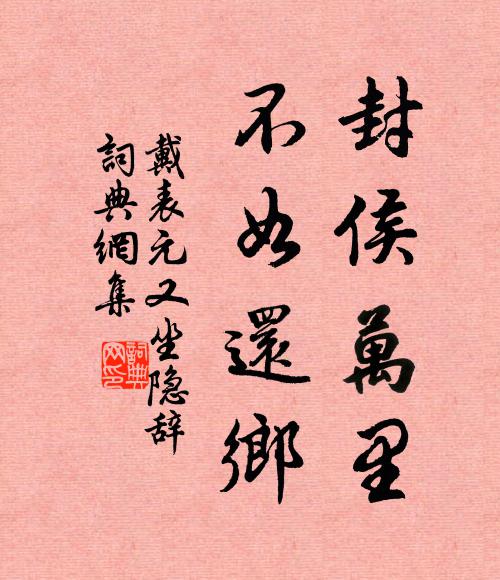 封侯萬里
不如還鄉
戴表元又坐隐辞
詞典網集
詞典网印